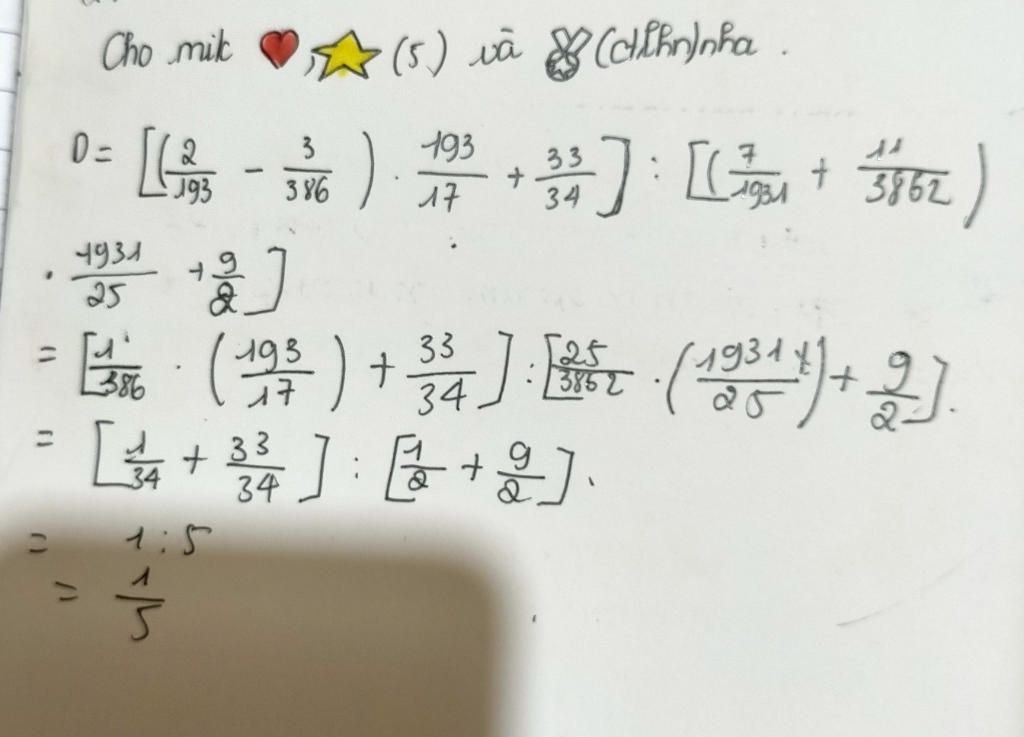 Cho mik ❤️, ⭐ (5) và 🏅 (ctlhn) nha .
D = [(2/193 - 3/386) . 193/17 + 33/34] : [(7/1931 + 11/3862)
. 1931/25 + 9/2]
= [1/386 . (193/17) + 33/34] : [25/3862 . (1931/25) + 9/2].
= [1/34 + 33/34] : [1/2 + 9/2].
= 1 : 5
= 1/5